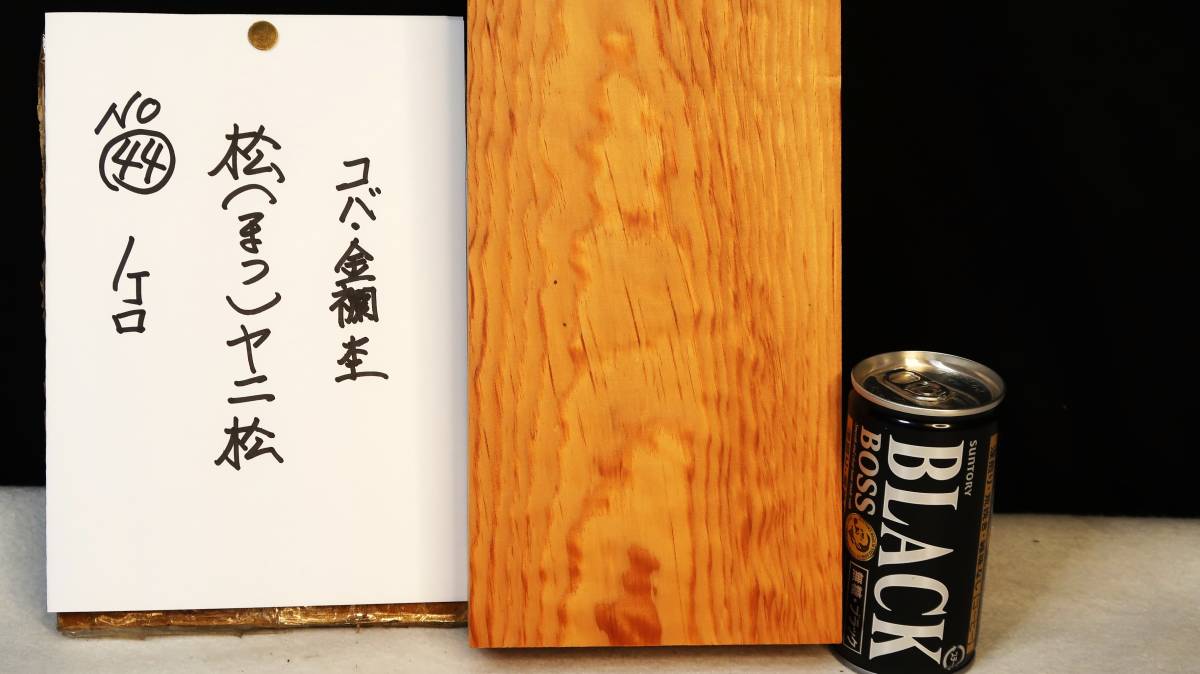 コバ・金襴杢
松(まつ)ヤニ松
NO
44
SUNTORY
BLACK
BOSS
無糖・ブラック